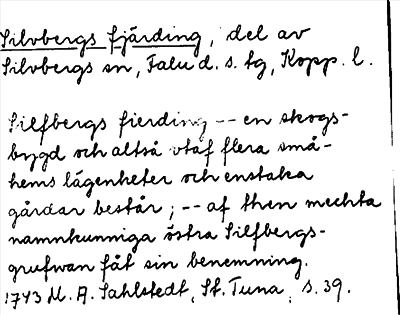 Silvbergs fjärding, del av
Silvbergs sn, Falu d. s. tg, Kopp. l.
Silfbergs fierding -- en skogs-
bygd och altså utaf flera små-
hems lägenheter och enstaka
gårdar består; -- af then mechta
namnkunniga östra Silfbergs-
grufwan fåt sin benemning.
1743 M. A. Sahlstedt, St. Tuna, s. 39.